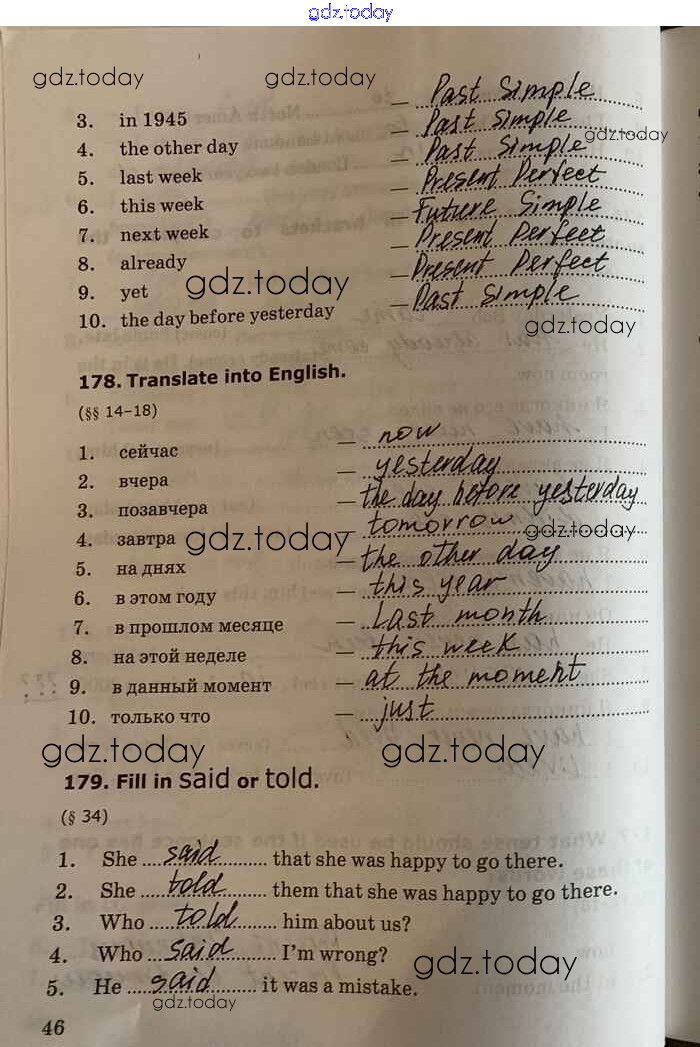 gdz.today
gdz.today gdz.today
3. in 1945 – Past Simple
4. the other day – Past Simple
gdz.today
5. last week – Past Simple
6. this week – Present Perfect
7. next week – Future Simple
8. already – Present Perfect
9. yet – Present Perfect
gdz.today
10. the day before yesterday – Past Simple
gdz.today
178. Translate into English.
(§§ 14–18)
1. сейчас – now
2. вчера – yesterday
3. позавчера – the day before yesterday
4. завтра – tomorrow
gdz.today gdz.today
5. на днях – the other day
6. в этом году – this year
7. в прошлом месяце – Last month
8. на этой неделе – this week
9. в данный момент – at the moment
10. только что – just
gdz.today gdz.today
179. Fill in said or told.
(§ 34)
1. She said that she was happy to go there.
2. She told them that she was happy to go there.
3. Who told him about us?
4. Who said I'm wrong?
gdz.today
5. He said it was a mistake.
gdz.today
46